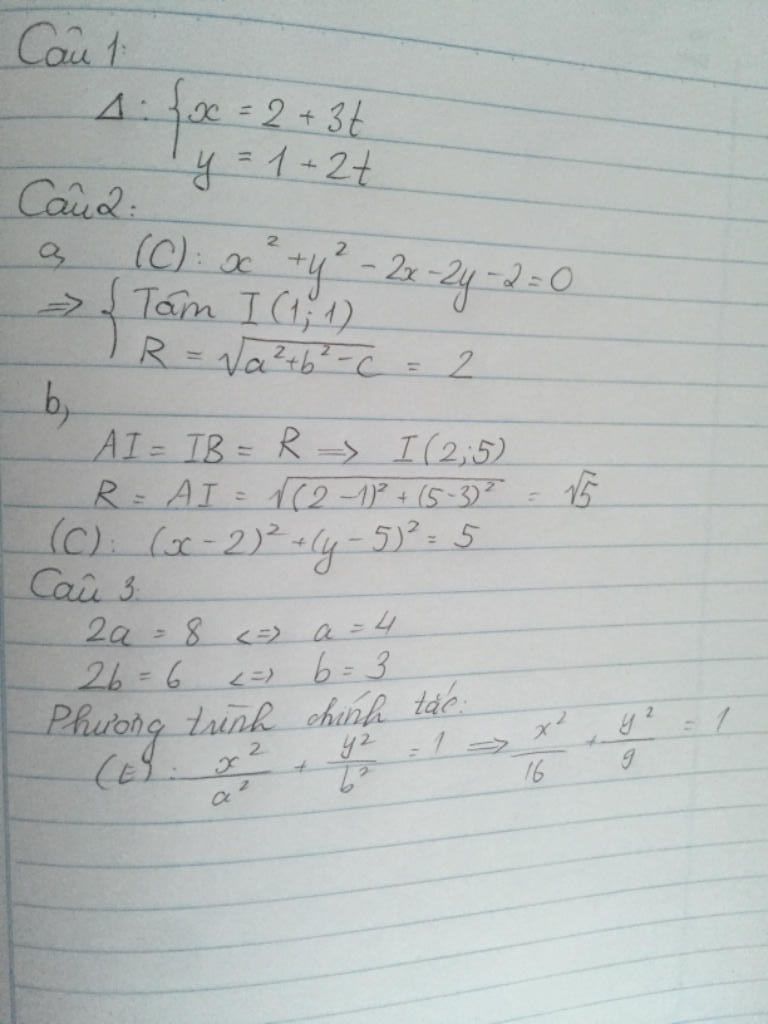 Câu 1:
Δ: { x = 2 + 3t
y = 1 + 2t
Câu 2:
a, (C): x² + y² - 2x - 2y - 2 = 0
=> { Tâm I (1; 1)
R = √(a² + b² - c) = 2
b,
AI = IB = R => I (2; 5)
R = AI = √((2 - 1)² + (5 - 3)²) = √5
(C): (x - 2)² + (y - 5)² = 5
Câu 3:
2a = 8 <=> a = 4
2b = 6 <=> b = 3
Phương trình chính tắc:
(E): x²/a² + y²/b² = 1 => x²/16 + y²/9 = 1